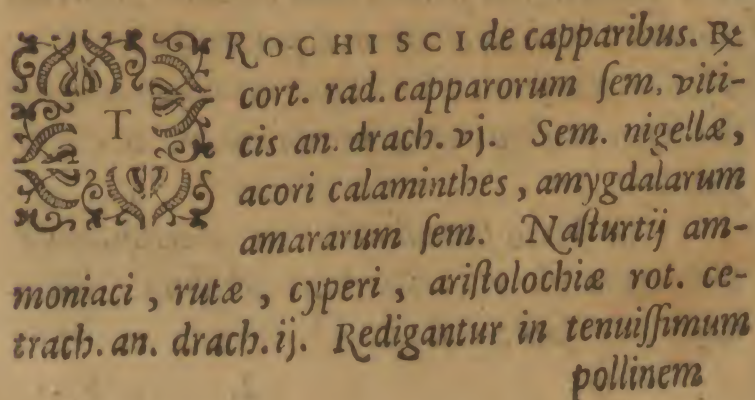 TROCHISCI de capparibus. ℞
cort. rad. capparorum ſem. viti-
cis an. drach. vj. Sem. nigellæ,
acori calaminthes, amygdalarum
amararum ſem. Naſturtij am-
moniaci, rutæ, cyperi, ariſtolochiæ rot. ce-
trach. an. drach. ij. Redigantur in tenuiſſimum
pollinem